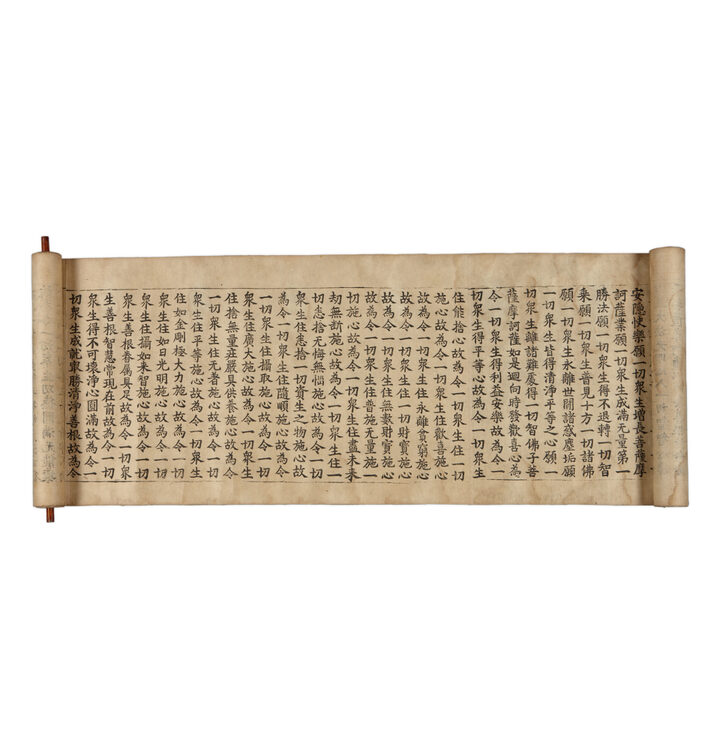 安隱快樂願一切衆生增長菩薩摩
訶薩業願一切衆生成滿无量第一
勝法願一切衆生得不退轉一切智
乘願一切衆生普見十方一切諸佛
願一切衆生永離世間諸惑塵垢願
一切衆生皆得清淨平等之心願一
切衆生離諸難處得一切智佛子菩
薩摩訶薩如是迴向時發歡喜心為
令一切衆生得利益安樂故為令一
切衆生得平等心故為令一切衆生
住能捨心故為令一切衆生住一切
施心故為令一切衆生住歡喜施心
故為令一切衆生住永離貧窮施心
故為令一切衆生住一切財寶施心
故為令一切衆生住無數財寶施心
故為令一切衆生住普施无量施一
切施心故為令一切衆生住盡未来
劫無斷施心故為令一切衆生住一
切悉捨无悔無惱施心故為令一切
衆生住悉捨一切資生之物施心故
為令一切衆生住隨順施心故為令
一切衆生住攝取施心故為令一切
衆生住廣大施心故為令一切衆生
住捨無量莊嚴具供養施心故為令
一切衆生住无著施心故為令一切
衆生住平等施心故為令一切衆生
住如金剛極大力施心故為令一切
衆生住如日光明施心故為令一切
衆生住攝如来智施心故為令一切
衆生善根眷屬具足故為令一切衆
生善根智慧常現在前故為令一切
衆生得不可壞淨心圓滿故為令一
切衆生成就最勝清淨善根故為令